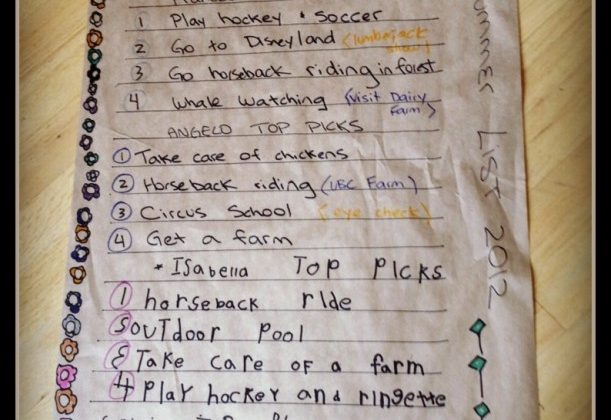 1 Play hockey + Soccer
2 Go to Disneyland (lumberjack show)
3 Go horseback riding in forest
4 Whale watching (visit Dairy Farm)
ANGELO TOP PICKS
1 Take care of chickens
2 Horseback riding (UBC Farm)
3 Circus School (eye check)
4 Get a farm
* Isabella Top Picks
1 horseback ride
S outdoor pool
8 Take care of a farm
4 Play hockey and ringette
List 2012